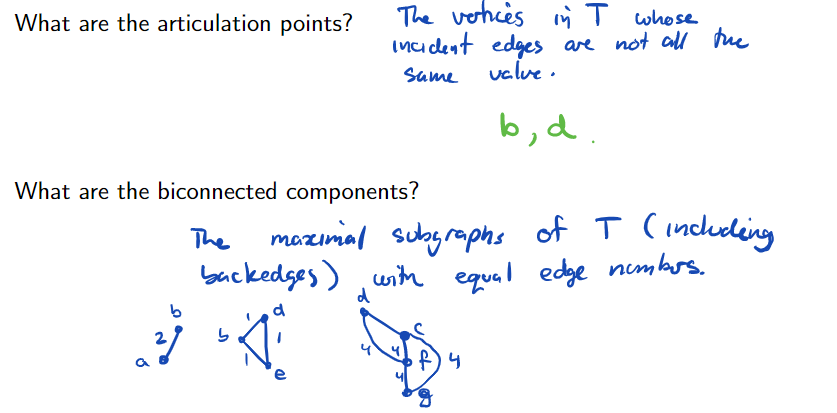 What are the articulation points?
The vertices in T whose
incident edges are not all the
same value.
b, d.
What are the biconnected components?
The maximal subgraphs of T (including
backedges) with equal edge numbers.
b
2
a
d
1
b
1
1
e
d
c
4
4
f
4
4
g